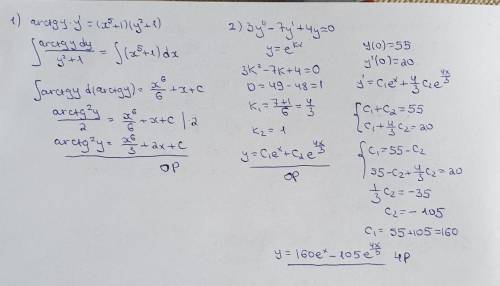 1) arctgy·y' = (x⁵+1)(y²+1)
∫ arctgy dy / y²+1 = ∫(x⁵+1)dx
∫arctgy d(arctgy) = x⁶/6 + x + C
arctg²y / 2 = x⁶/6 + x + C | 2
arctg²y = x⁶/3 + 2x + C
OP
2) 3y'' - 7y' + 4y = 0
y = e^{kx}
3K² - 7K + 4 = 0
D = 49 - 48 = 1
K₁ = 7+1/6 = 4/3
K₂ = 1
y = C₁eˣ + C₂e^{4x/3}
OP
y(0) = 55
y'(0) = 20
y' = C₁eˣ + 4/3 C₂e^{4x/3}
{ C₁ + C₂ = 55
C₁ + 4/3 C₂ = 20
{ C₁ = 55 - C₂
55 - C₂ + 4/3 C₂ = 20
1/3 C₂ = -35
C₂ = -105
C₁ = 55 + 105 = 160
y = 160eˣ - 105e^{4x/3} ЧР